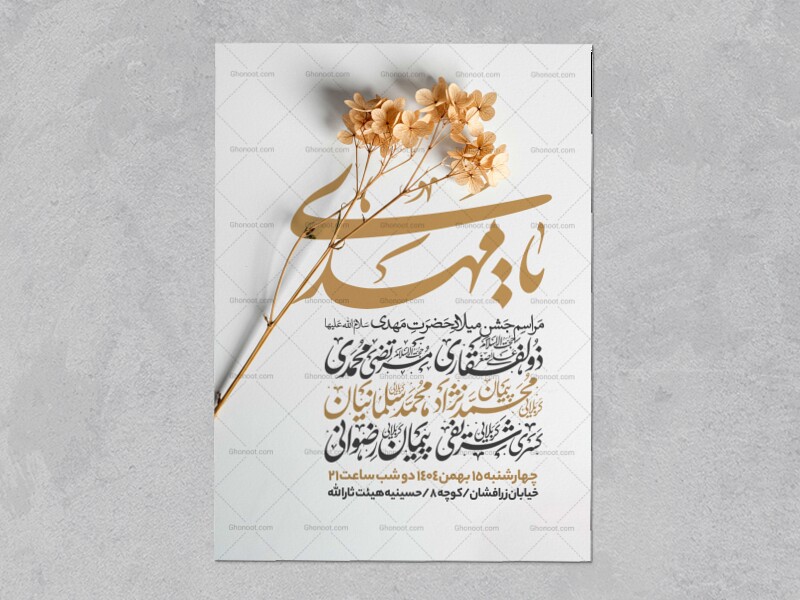 یا مهدی
مراسم جشن میلاد حضرت مهدی سلام الله علیها
حجت الاسلام ذوالفقاری حجت الاسلام مرتضی محمدی
کربلایی پیمان محمدنژاد کربلایی محمد سلمانیان
کربلایی پیمان رضوانی
چهارشنبه ۱۵ بهمن ۱۴۰۴ دو شب ساعت ۲۱
خیابان زرافشان / کوچه ۸ / حسینیه هیئت ثارالله
Ghonoot.com